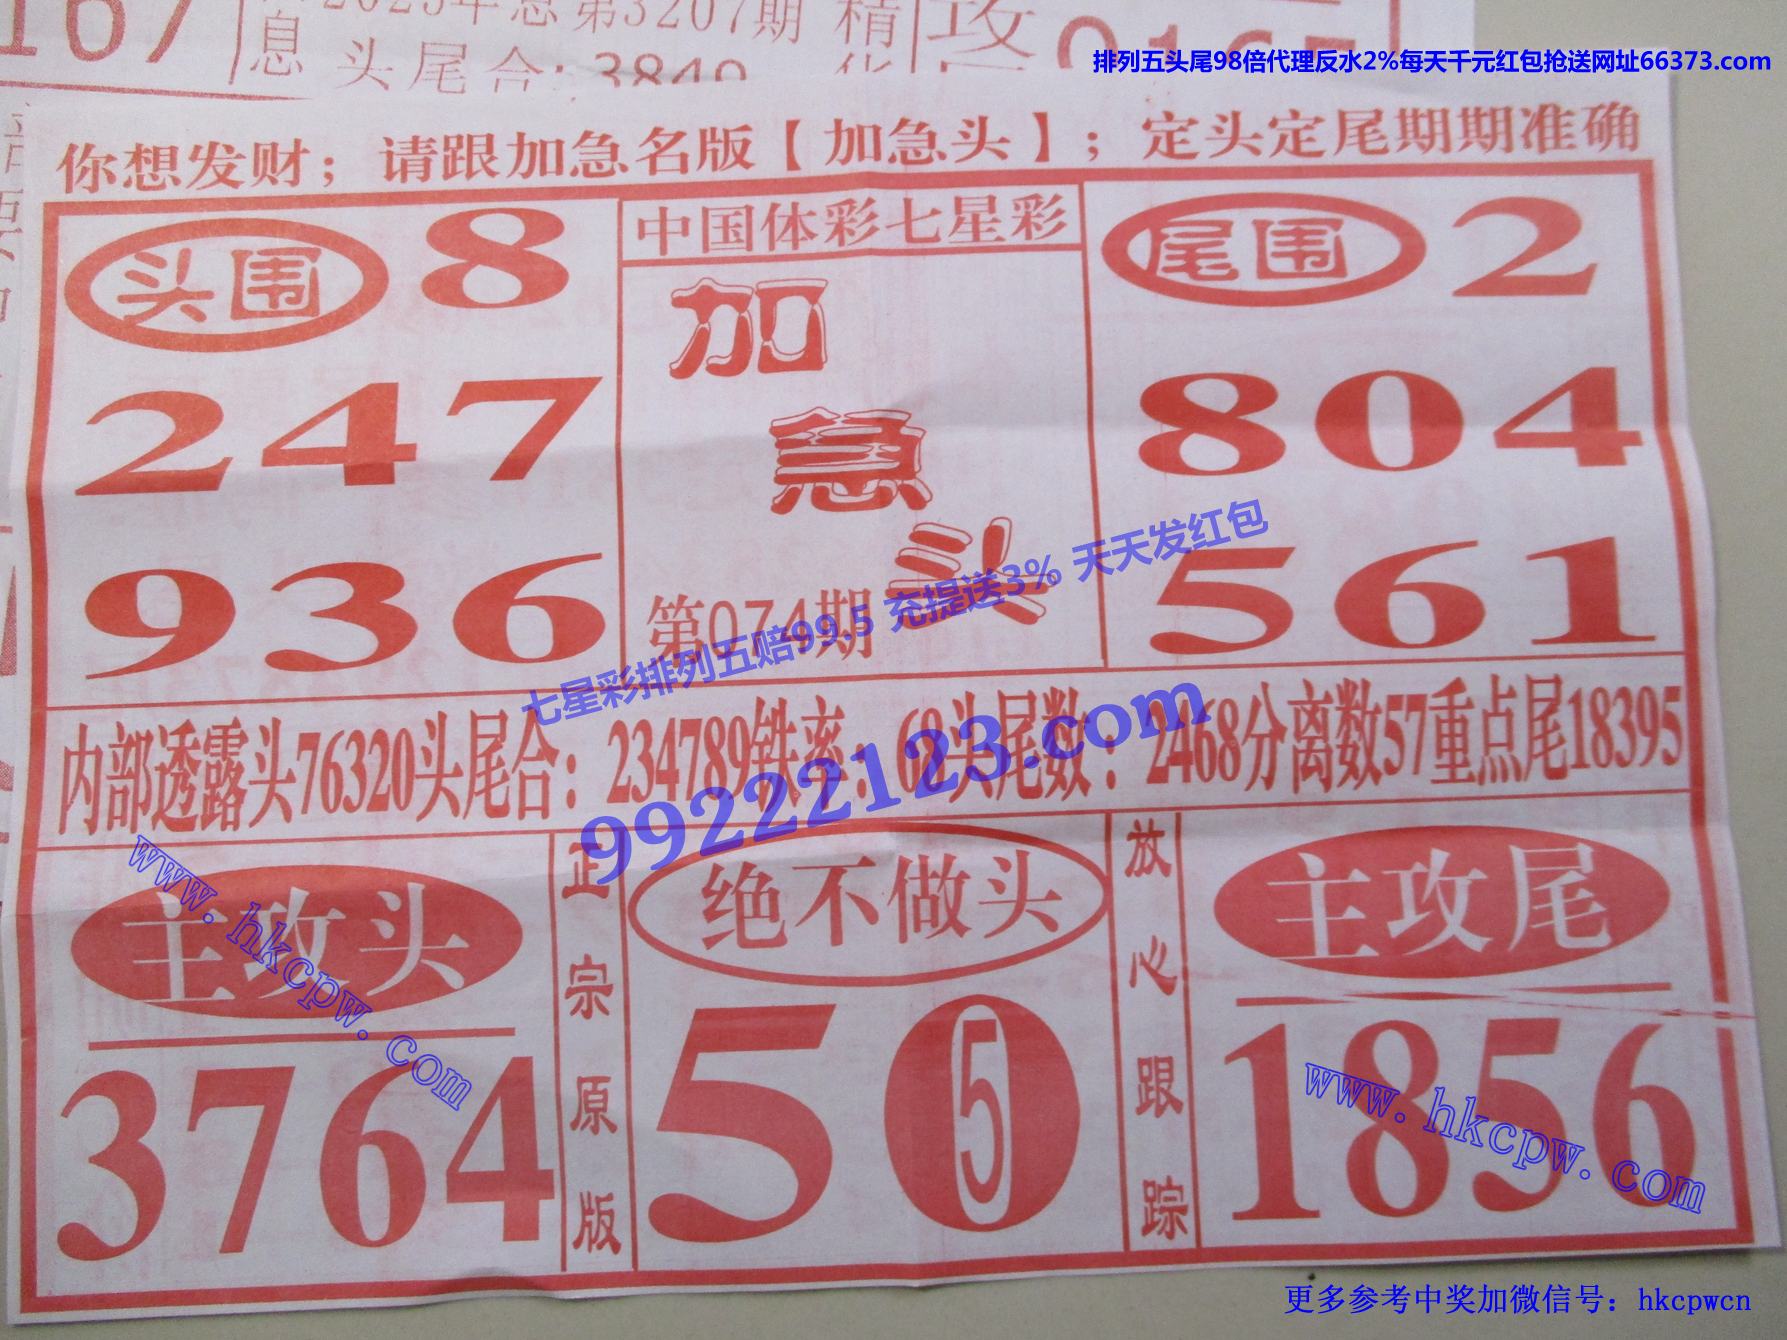 167
息
2025年总第3207期
头尾合:3840
精
攻
排列五头尾98倍代理反水2%每天千元红包抢送网址66373.com
你想发财；请跟加急名版【加急头】；定头定尾期期准确
头围 8
247
936
中国体彩七星彩
加
急
头
第074期
尾围 2
804
561
七星彩排列五赔99.5 充提送3% 天天发红包
99222123.com
内部透露头76320头尾合：234789铁率：60头尾数：2468分离数57重点尾18395
主攻头
3764
www.hkcpw.com
正宗原版
绝不做头
50
5
放心跟踪
主攻尾
1856
www.hkcpw.com
更多参考中奖加微信号：hkcpwcn